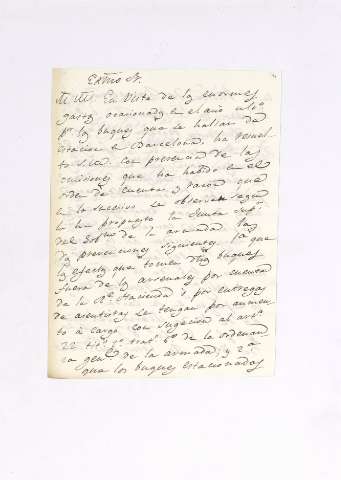 Exmo Sr.
En vista de los enormes
gastos ocasionados en el año ulto
pr los buques que se hallan de
estacion en Barcelona, ha resuel
to S.M. con presencia de las
omisiones que ha habido en el
orden de cuenta y razon que
en lo sucesivo se observen segun
lo ha propuesto la Junta Supr
del de la armada, las
prevenciones siguientes: 1a que
los efectos que tomen dhos buques
fuera de los arsenales por cuenta
de la Rl Hacienda o por entregas
de asentistas se tengan por aumen
to á cargo con sugecion al arto
22 tito 3o trato 6o de la ordenan
za genl de la armada; y 2a
que los buques estacionados